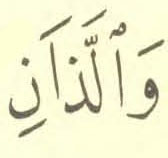 وَٱلَّذَانِ